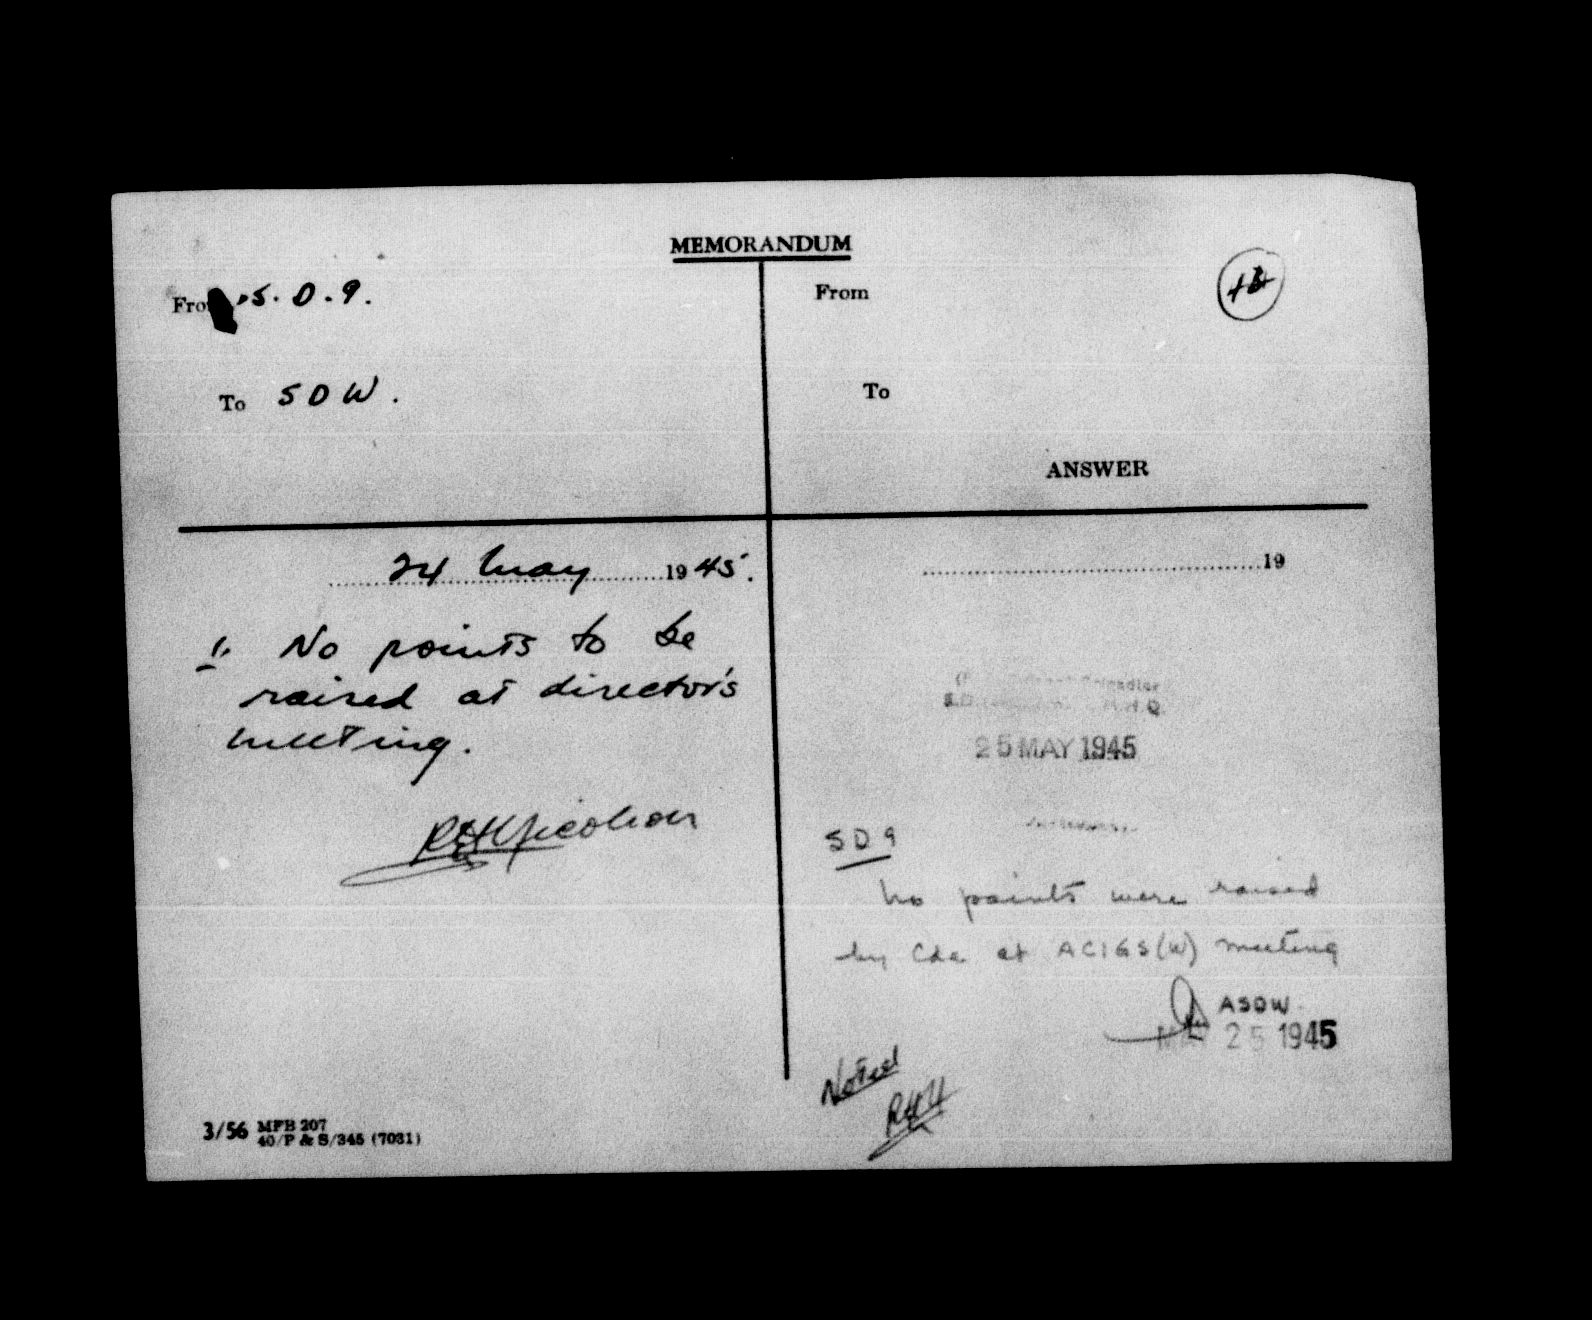 MEMORANDUM
From S.D.9.
To SDW.
24 May 1945.
1. No points to be
raised at director's
meeting.
3/56 MFB 207
40/P & S/345 (7031)
From
To
ANSWER
19
25 MAY 1945
SD9
No points were raised
by Cda at ACIGS(W) meeting
ASDW.
MAY 25 1945
Noted